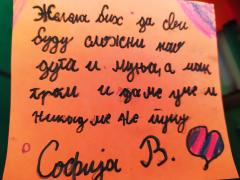 Желела бих да сви
буду сложни као
дуга и муња, а иак
гром и да ме уче и
никад ме не туку
Софија В.